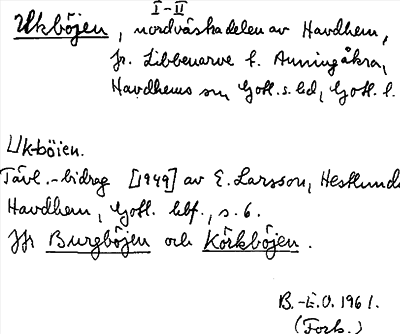 I-II
Ukböjen, nordvästra delen av Havdhem,
fr. Libbenarve t. Anningåkra,
Havdhems sn, Gotl. s. hd, Gotl. l.
Uk-böien.
Tävl.-bidrag [1949] av E. Larsson, Hestlunda
Havdhem, Gotl. hbf., s. 6.
Jfr Burgböjen och Körkböjen.
B.-E.O. 1961.
(Fork.)